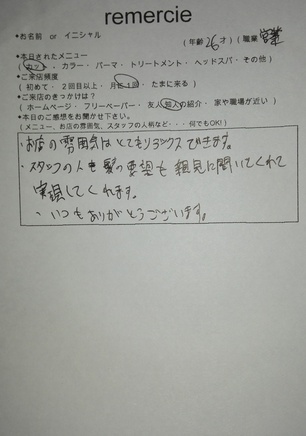 remercie
*お名前 or イニシャル
(年齢 26才) (職業 営業)
*本日されたメニュー
(カット・カラー・パーマ・トリートメント・ヘッドスパ・その他)
*ご来店頻度
(初めて・2回目以上・月に1回・たまに来る)
*ご来店のきっかけは?
(ホームページ・フリーペーパー・友人知人の紹介・家や職場が近い)
*本日のご感想をお聞かせ下さい。
(メニュー、お店の雰囲気、スタッフの人柄など・・・何でもOK!)
・お店の雰囲気はとてもリラックスできます。
・スタッフの人も髪の要望も親身に聞いてくれて
実現してくれます。
・いつもありがとうございます。